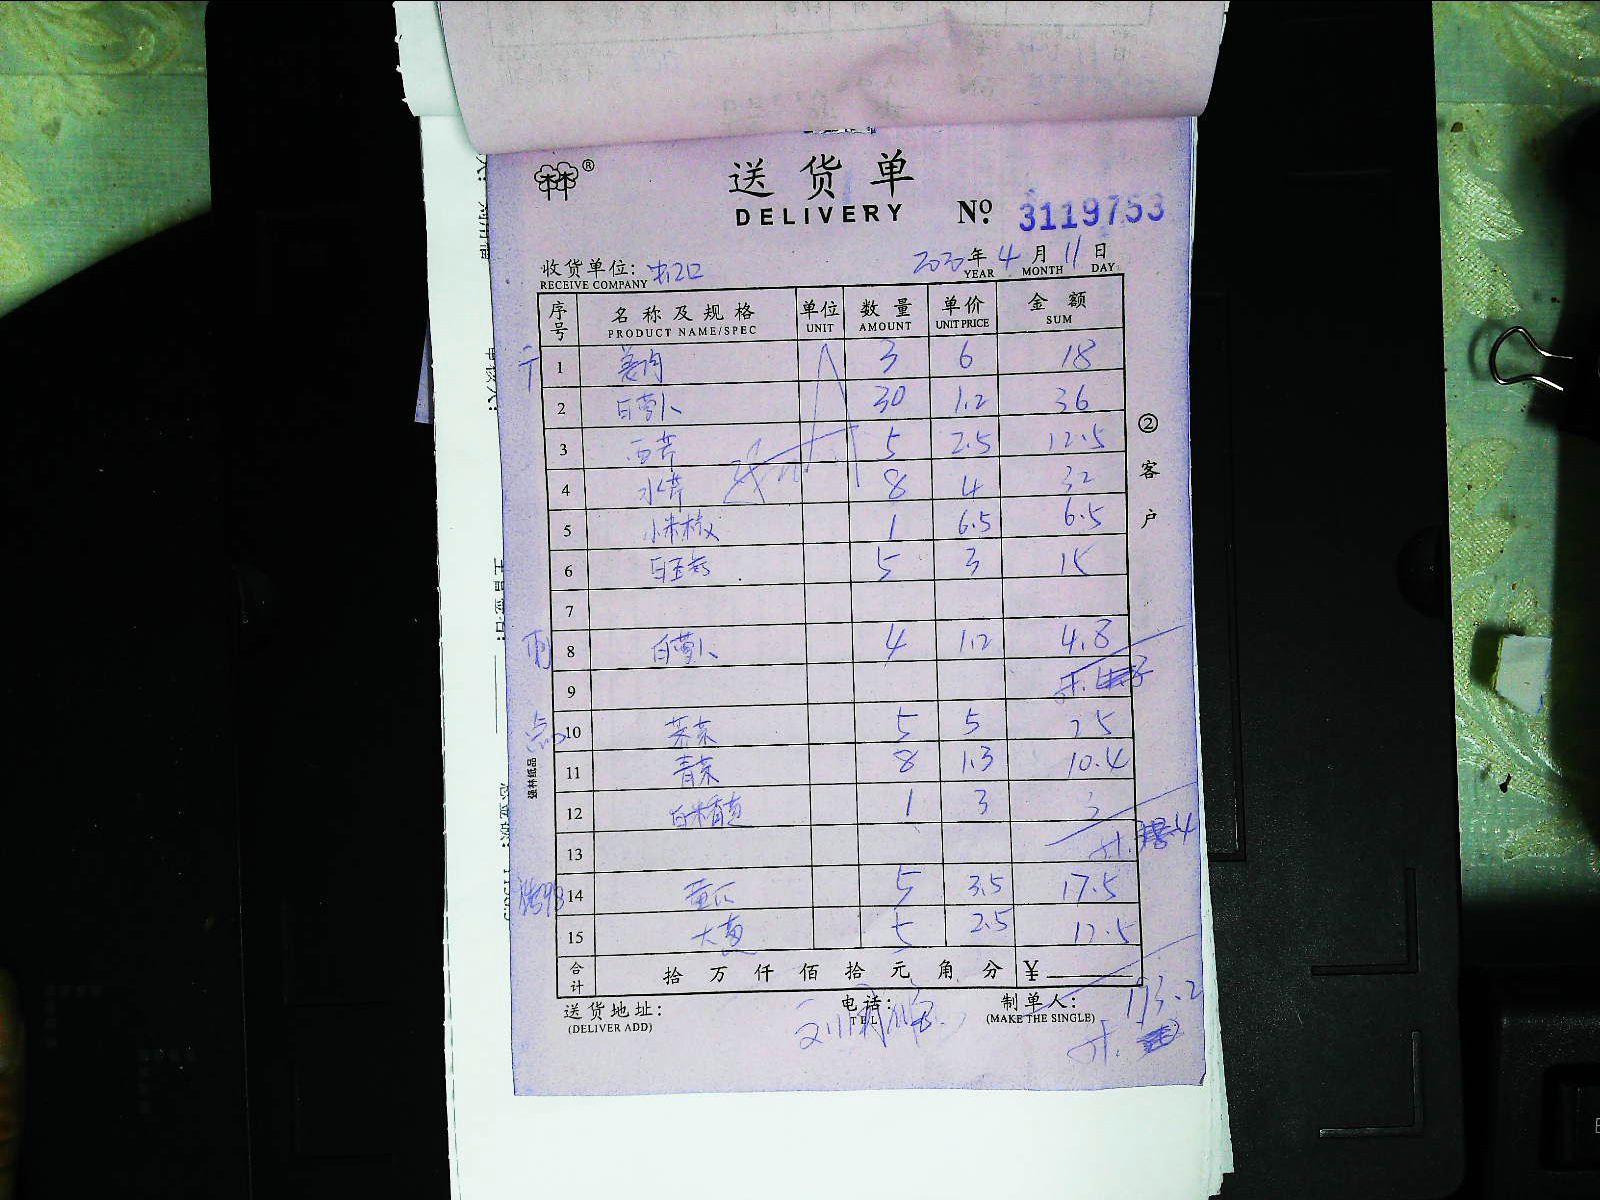 送货单
DELIVERY № 3119753
收货单位:
RECEIVE COMPANY
2020年 4月 11日
YEAR MONTH DAY
序号 名称及规格 单位 数量 单价 金额
PRODUCT NAME/SPEC UNIT AMOUNT UNIT PRICE SUM
1 姜肉 3 6 18
2 白萝卜 30 1.2 36
3 西芹 5 2.5 12.5
4 水芹 8 4 32
5 小米椒 1 6.5 6.5
6 白玉菇 5 3 15
7
8 白萝卜 4 1.2 4.8
9
点
10 5 5 25
11 青菜 8 1.3 10.4
12 1 3 3
13
14 5 3.5 17.5
15 5 2.5 12.5
合计 拾 万 仟 佰 拾 元 角 分 ¥
193.2
送货地址: 电话: 制单人:
(DELIVER ADD) TEL (MAKE THE SINGLE)
②客户
强林纸品